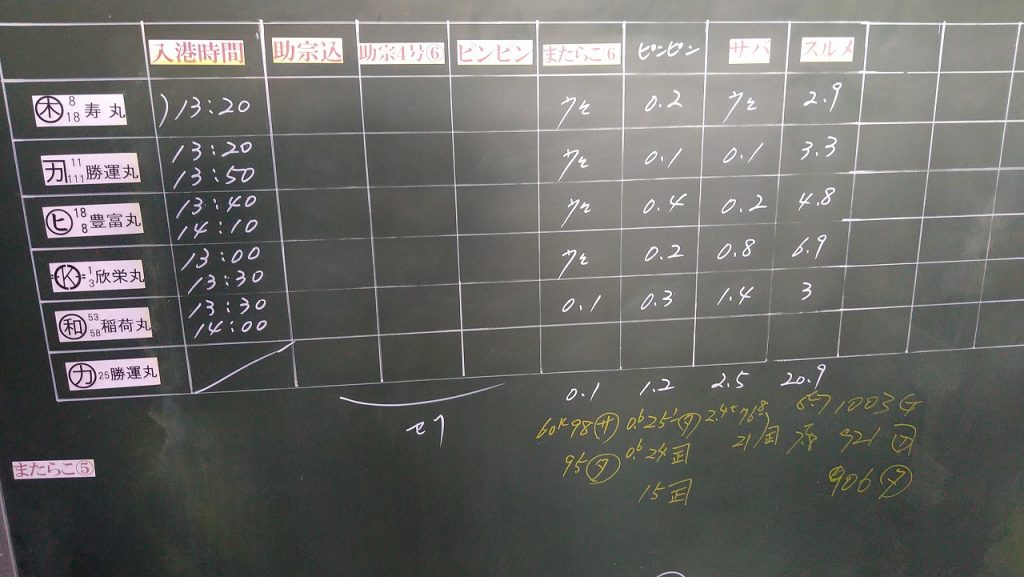 入港時間 助宗込 助宗4号⑥ ピンピン またらこ6 ピンピン サバ スルメ
㋭ 8 18 寿丸 13:20 0.2 2.9
カ 11 111 勝運丸 13:20 13:50 0.1 0.1 3.3
㋪ 18 8 豊富丸 13:40 14:10 0.4 0.2 4.8
Ⓚ 1 3 欣栄丸 13:00 13:30 0.2 0.8 6.9
和 53 58 稲荷丸 13:30 14:00 0.1 0.3 1.4 3
㋕ 25 勝運丸
0.1 1.2 2.5 20.9
セリ
98 ㋚ 1003
95 ㋟ 24 21 921
15 906 ㋟
またらこ⑤